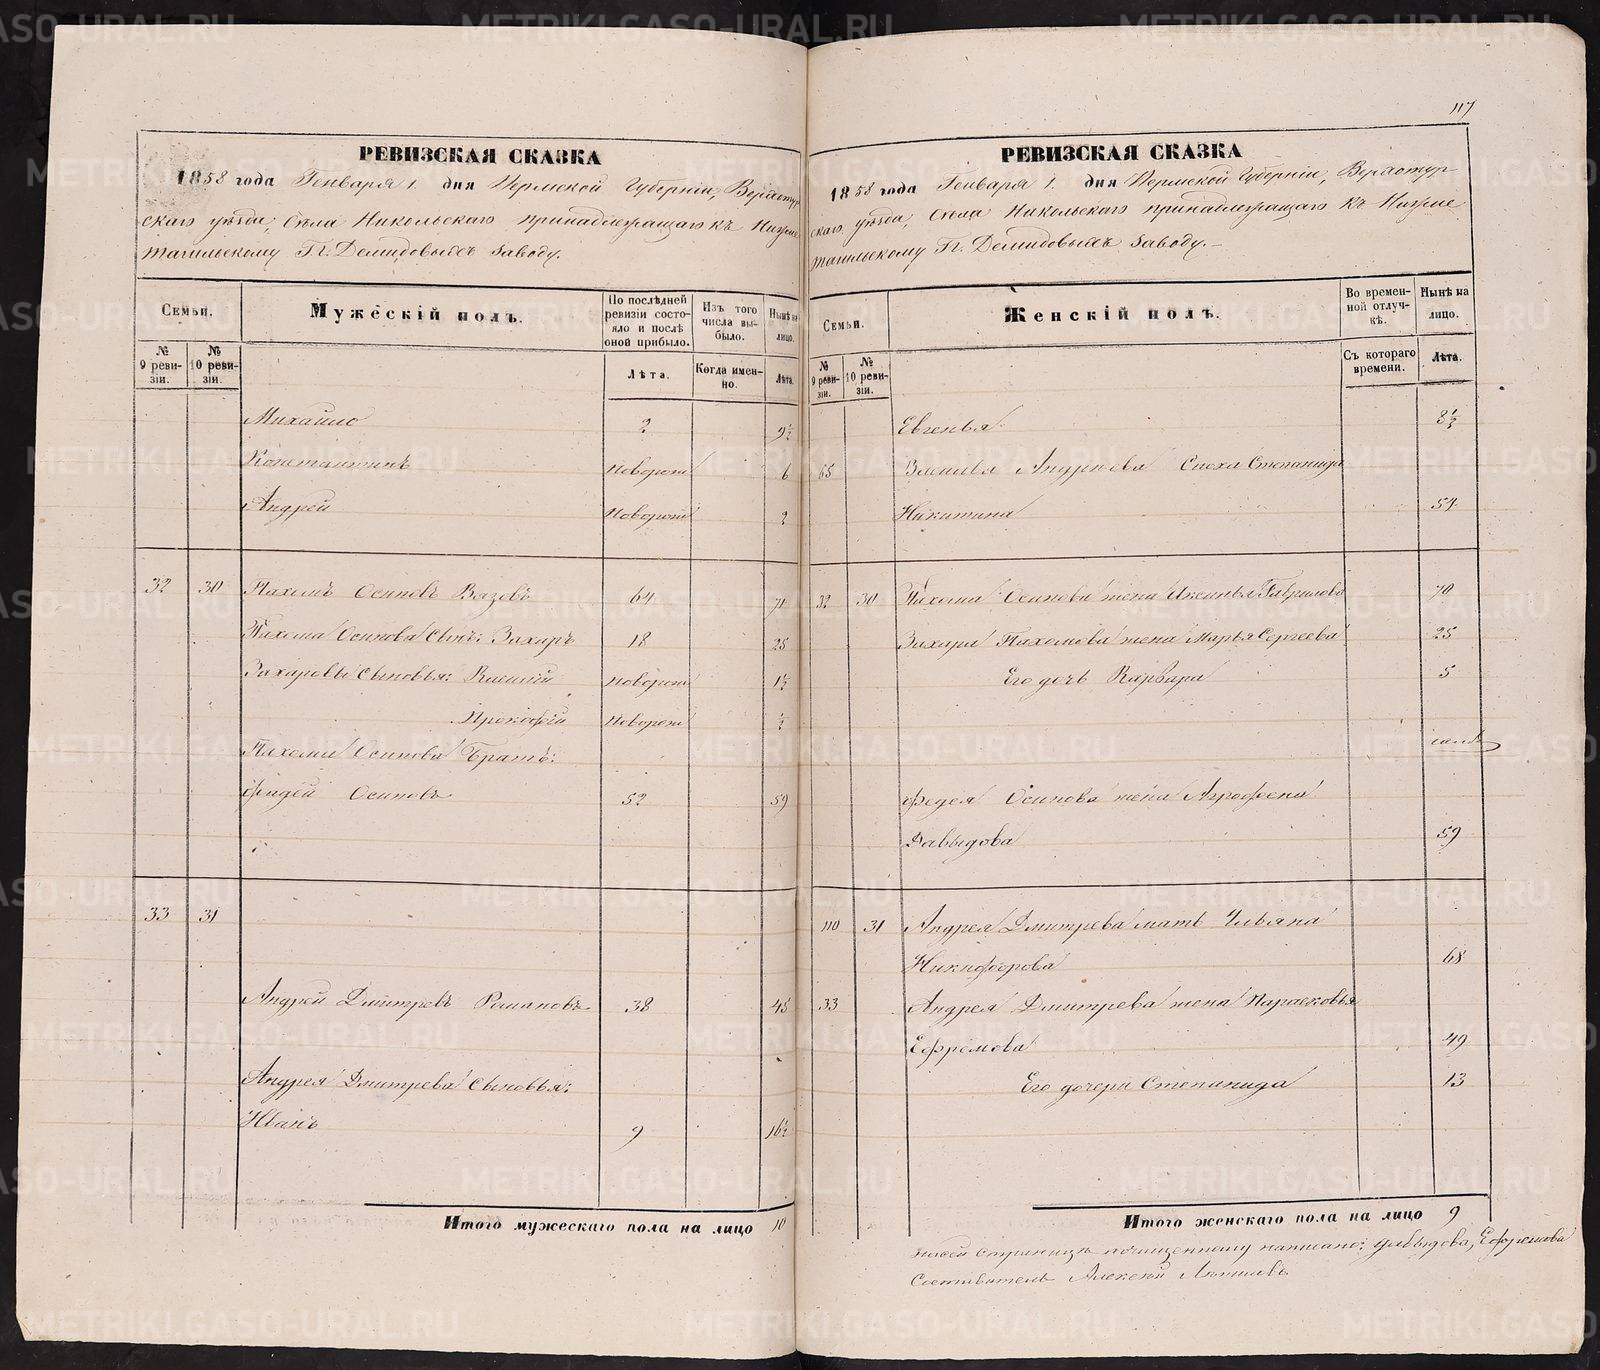 РЕВИЗСКАЯ СКАЗКА
1858 года Генваря 1. дня Пермской Губерніи, Верхотур
скаго уѣзда, Села Никольскаго принадлежащаго къ Нижне
тагильскому Гг. Демидовыхъ заводу.
Семьи.
Мужескій полъ.
По послѣдней ревизіи состояло и послѣ оной прибыло.
Изъ того числа выбыло.
Нынѣ на лицо.
№ 9 ревизіи.
№ 10 ревизіи.
Лѣта.
Когда именно.
Лѣта.
Михайло 2 9½
Константинъ новорож 6
Андрей Новорож 2
32 30 Пахомъ Осиповъ Вязовъ 64 71
Пахома Осипова Сынъ: Захаръ 18 25
Захаровы Сыновья: Василій новорож 1½
Прокофій новорож ½
Пахома Осипова Братъ:
Фадей Осиповъ 52 59
33 31
Андрей Дмитревъ Романовъ 38 45
Андрея Дмитрева Сыновья:
Иванъ 9 16½
Итого мужескаго пола на лицо 10
117
РЕВИЗСКАЯ СКАЗКА
1858 года Генваря 1. дня Пермской Губерніи, Верхотур
скаго уѣзда, Села Никольскаго принадлежащаго къ Нижне
тагильскому Гг. Демидовыхъ заводу.
Семьи.
Женскій полъ.
Во временной отлучкѣ.
Нынѣ на лицо.
№ 9 ревизіи.
№ 10 ревизіи.
Съ котораго времени.
Лѣта.
Евгенья 8½
65 Сноха Степанида
Никитина 54
32 30 Пахома Осипова жена Аксинья Гаврилова 70
Захара Пахомова жена Марья Сергеева 25
Его дочь Варвара 5
Фадея Осипова жена Агрофена
Давыдова 59
110 31 Андрея Дмитрева мать Ульяна
Никифорова 68
33 Андрея Дмитрева жена Парасковья
Ефремова 49
Его дочери Степанида 13
Итого женскаго пола на лицо 9
На сей страницѣ почищенному написано: Давыдова, Ефремова
Составитель Алексей
METRIKI.GASO-URAL.RU